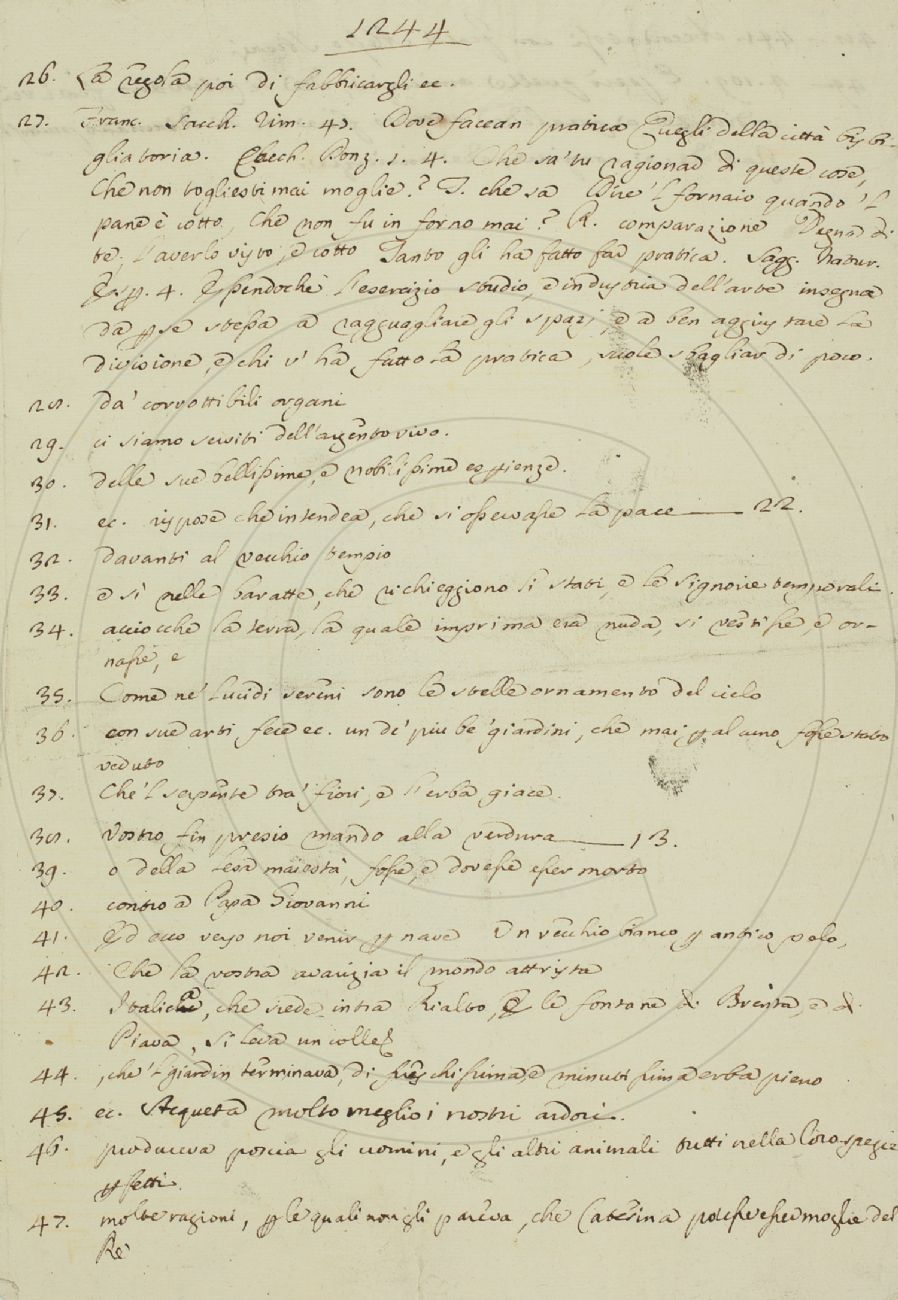 1244
26. La regola poi di fabbricargli ec.
27. Franc. Sacch. rim. 47. Dove faccan pratica Quegli della città bisbi-
gliatoria. Cecch. Donz. 1. 4. Che sa' tu ragionar di queste cose,
Che non togliesti mai moglie? T. che sa Dire 'l fornaio quando 'l
pane è cotto, Che non fu in forno mai? R. comparazione Degna di
te; L'averlo visto, e cotto Tanto gli ha fatto far pratica. Sagg. Natur.
Esp. 4. Essendochè l'esercizio studio, e industria dell'arte insegna
da per se stessa a ragguagliare gli spazj, e a ben aggiustare la
divisione, e chi v'ha fatto la pratica, suole sbagliar di poco.
28. da' corrottibili organi
29. ci siamo serviti dell'argento vivo.
30. delle sue bellissime, e nobilissime esperienze.
31. ec. rispose che intendea, che si osservasse la pace — 22.
32. davanti al vecchio tempio
33. e sì nelle baratte, che richieggiono li stati, e le signorie temporali.
34. acciocchè la terra, la quale imprima era nuda, si vestisse, e or-
nasse, e
35. Come ne' lucidi sereni sono le stelle ornamento del cielo
36. con sue arti fece ec. un de' piu be' giardini, che mai per alcuno fosse stato
veduto
37. Che 'l serpente tra' fiori, e l'erba giace.
38. Vostro fin presio mando alla verdura — 13.
39. o della lesa maiestà, fosse, e dovesse esser morto
40. contro a Papa Giovanni
41. Ed ecco verso noi venir per nave Un vecchio bianco per antico pelo,
42. Che la vostra avarizia il mondo attrista
43. Italica, che siede intra Rialto, E le fontane di Brenta, e di
Piava, si leva un colle
44. , che 'l giardin terminava, di freschissima, e minutissima erba pieno
45. ec. Acqueta molto meglio i nostri ardori.
46. produceva poscia gli uomini, e gli altri animali tutti nella loro spezie
perfetti.
47. molte ragioni, per le quali non gli pareva, che Caterina potesse esser moglie del
Re